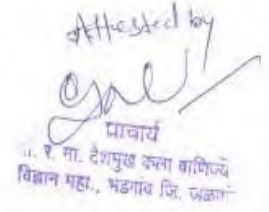 Attested by
प्राचार्य
र. ना. देशमुख कला वाणिज्य
विज्ञान महा., भडगाव जि. जळगाव